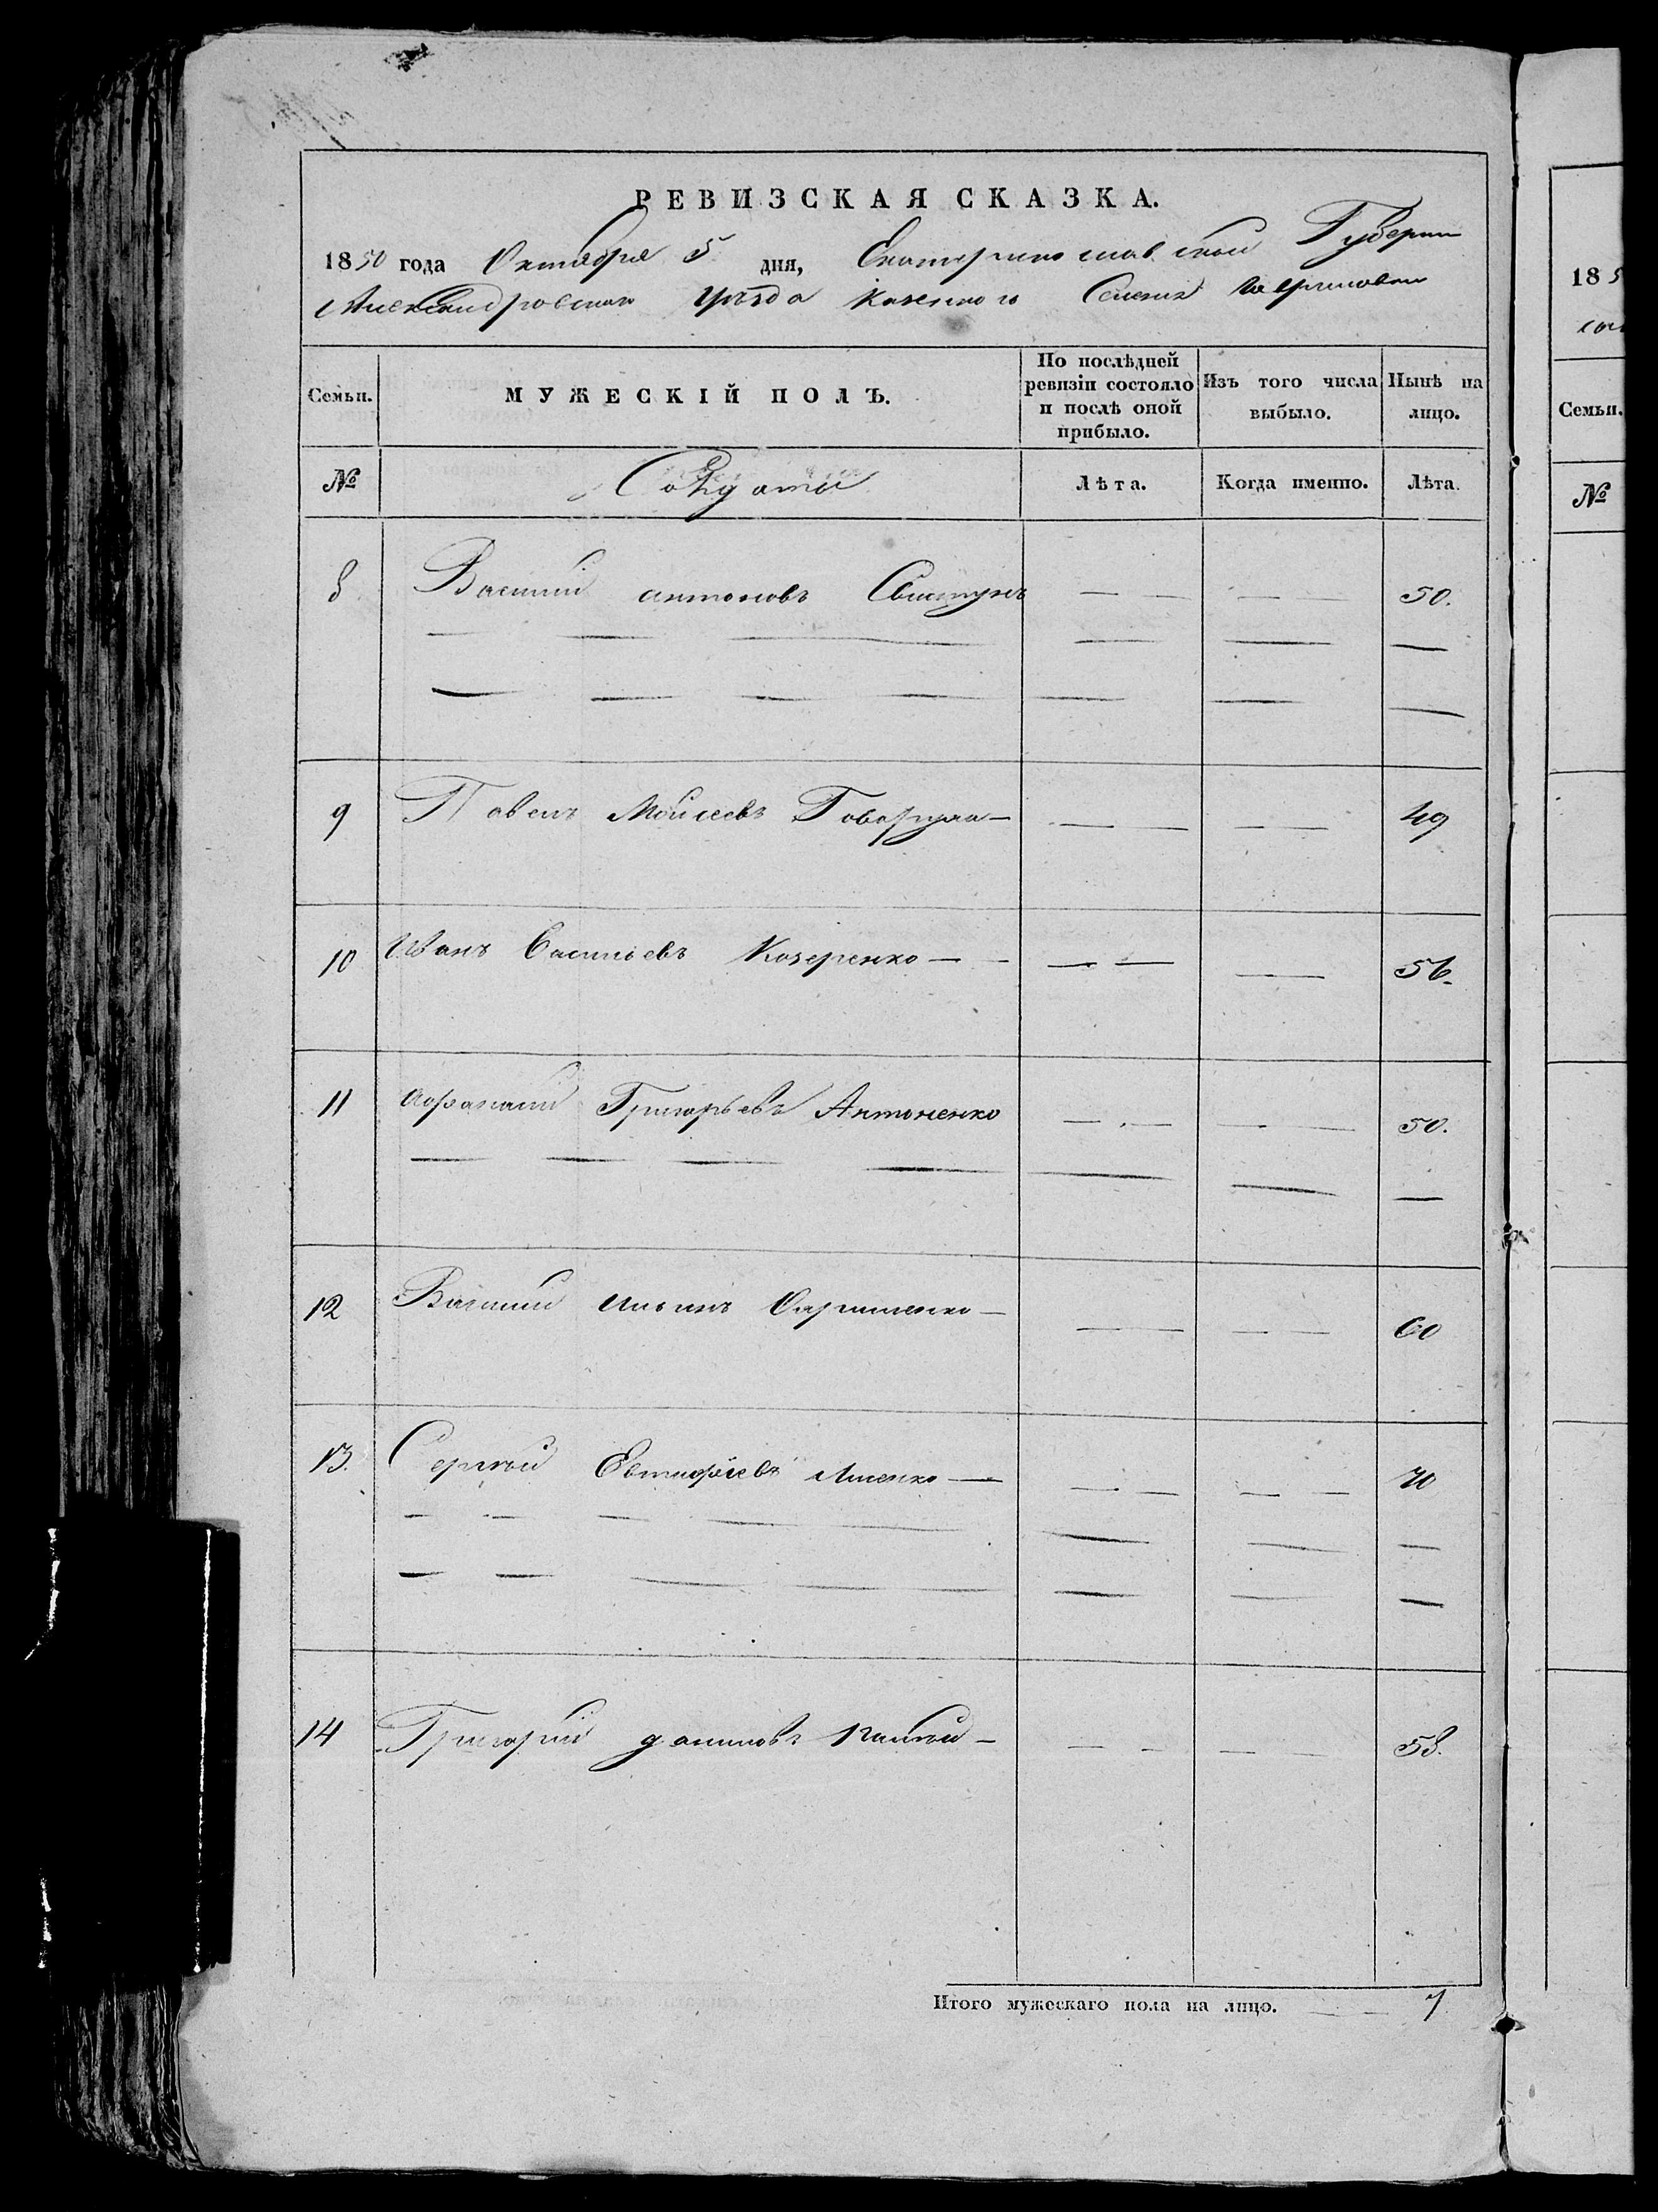 РЕВИЗСКАЯ СКАЗКА.
1850 года Октября 5 дня, Екатеринославской Губернии
Александровскаго Уѣзда Казеннаго Селения Гавриловки
Семьи. МУЖЕСКІЙ ПОЛЪ. По послѣдней ревизіи состояло и послѣ оной прибыло. Изъ того числа выбыло. Нынѣ на лицо.
№ Солдаты Лѣта. Когда именно. Лѣта.
8 Василий антоновъ Свистунъ — — — — 50.
9 Павелъ Моисеевъ — — — — 49
10 Иванъ Васильевъ Козеренко — — — — — 56.
11 Афанасий Григорьевъ Антоненко — — — — 50.
12 Василий Ильинъ — — — — 60
13. Сергѣй Евтифіевъ — — — — — 70
14 Григорий даниловъ — — — — — 58.
Итого мужескаго пола на лицо. — — 7
185
Семьи.
№